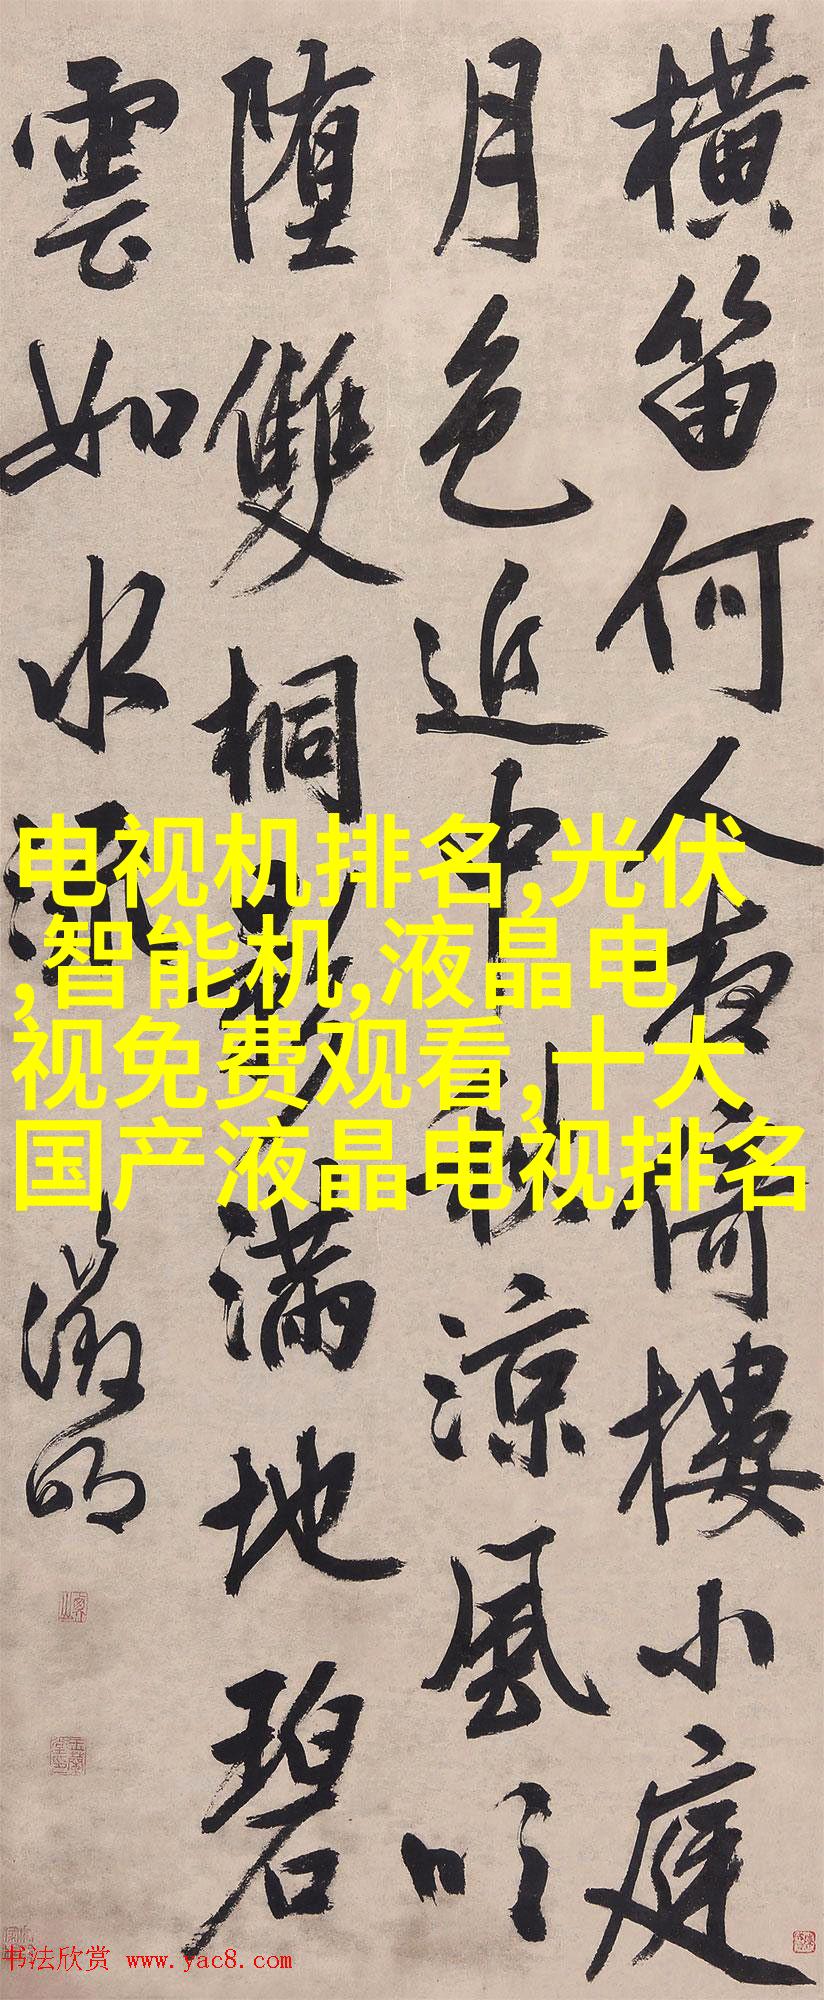 横笛何人夜倚樓小庭
月色近中秋涼風吹
堕雙桐影滿地碧
雲如水流
徵明
电视机排名,光伏
,智能机,液晶电
视免费观看,十大
国产液晶电视排名
书法欣赏 www.yac8.com